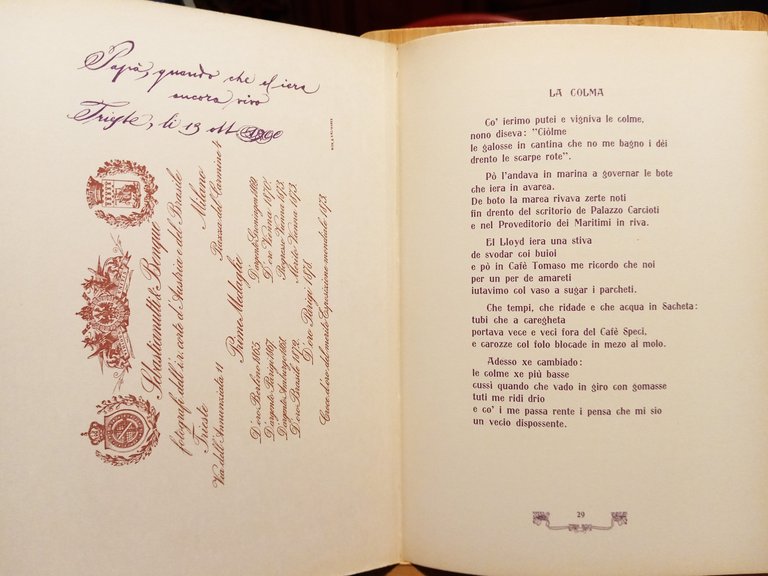 Papà, quando che el iera
ancora vivo
Trieste, li 13 ott. 1900
Sebastianutti & Benque
fotografi dell'i. r. corte d'Austria e del Brasile
Trieste Milano
Via dell'Annunziata 11 Piazza del Carmine 4
Prime Medaglie
D'oro Berlino 1865 D'argento Groninga 1869
D'argento Parigi 1867 D'oro Vienna 1870
D'argento Amburgo 1868 Progresso Vienna 1873
D'oro Brasile 1872 Merito Vienna 1873
D'oro Parigi 1878
Croce d'oro del merito Esposizione mondiale 1873
LA COLMA
Co' ierimo putei e vigniva le colme,
nono diseva: "Ciòlme
le galosse in cantina che no me bagno i déi
drento le scarpe rote".
Pò l'andava in marina a governar le bote
che iera in avarea.
De boto la marea rivava zerte noti
fin drento del scritorio de Palazzo Carcioti
e nel Proveditorio dei Maritimi in riva.
El Lloyd iera una stiva
de svodar coi buioi
e pò in Cafè Tomaso me ricordo che noi
per un per de amareti
iutavimo col vaso a sugar i parcheti.
Che tempi, che ridade e che acqua in Sacheta:
tubi che a caregheta
portava vece e veci fora del Cafè Speci,
e carozze col folo blocade in mezo al molo.
Adesso xe cambiado:
le colme xe più basse
cussì quando che vado in giro con gomasse
tuti me ridi drio
e co' i me passa rente i pensa che mi sio
un vecio dispossente.
29